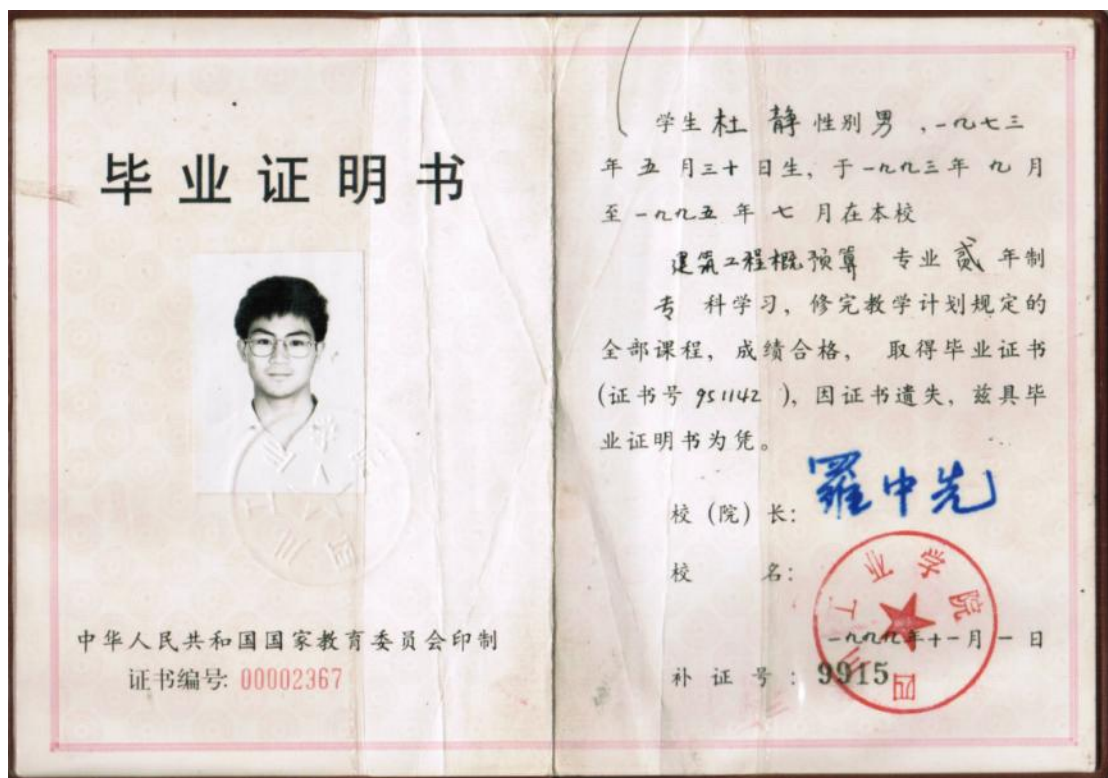 毕业证明书
中华人民共和国国家教育委员会印制
证书编号: 00002367
学生 杜 静 性别 男 ,一九七三
年 五 月三十 日生, 于一九九三年 九 月
至一九九五 年 七 月在本校
建筑工程概预算 专业 贰 年制
专 科学习, 修完教学计划规定的
全部课程, 成绩合格, 取得毕业证书
(证书号 951142 ), 因证书遗失, 兹具毕
业证明书为凭。
校 (院) 长: 罗中先
校 名:
四川工业学院
一九九九年十一月 一 日
补 证 号 : 9915